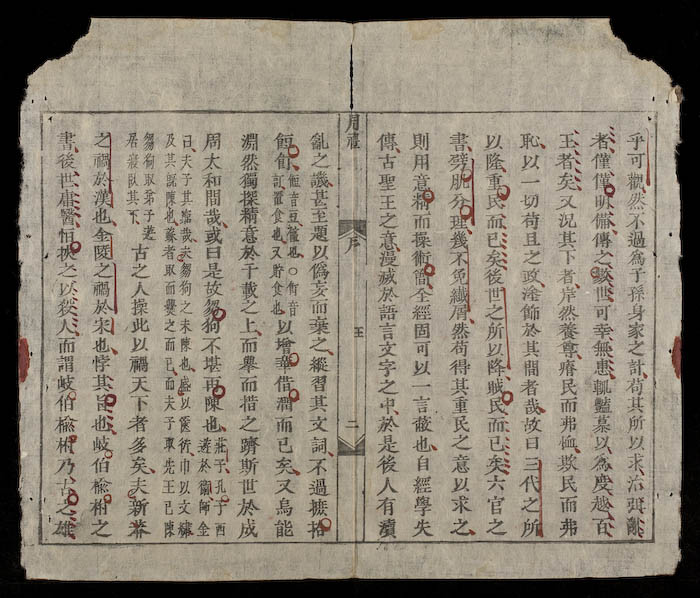 乎可觀然不過爲子孫身家之計苟其所以求治彌難
者僅僅明備傳之數世可幸無患輒豔慕以爲度越百
王者矣又況其下者岸然養尊瘠民而弗恤欺民而弗
恥以一切苟且之政塗飾於其間者哉故曰三代之所
以隆重民而已矣後世之所以降賊民而已矣六官之
書劈肌分理幾不免纖屑然苟得其重民之意以求之
則用意精而操術簡全經固可以一言蔽也自經學失
傳古聖王之意漫滅於語言文字之中於是後人有瀆
周禮
序
二
亂之譏甚至題以僞妄而棄之縱習其文詞不過摭拾
餖飣餖音豆饾也○飣音訂置食也又貯食也以增華借潤而已矣又烏能
淵然獨探精意於千載之上而舉而措之躋斯世於成
周太和間哉或曰是故芻狗不堪再陳也莊子孔子西遊於衞師金
曰夫子其窮哉夫芻狗之未陳也盛以篋衍巾以文繡
及其既陳也蘇者取而爨之而已而夫子取先王已陳
芻狗取弟子遊居寢臥其下古之人操此以禍天下者多矣夫新莽
之禍於漢也金陵之禍於宋也悖其旨也岐伯楡柎之
書後世庸醫怕挾之以殺人而謂岐伯楡柎乃古之雄